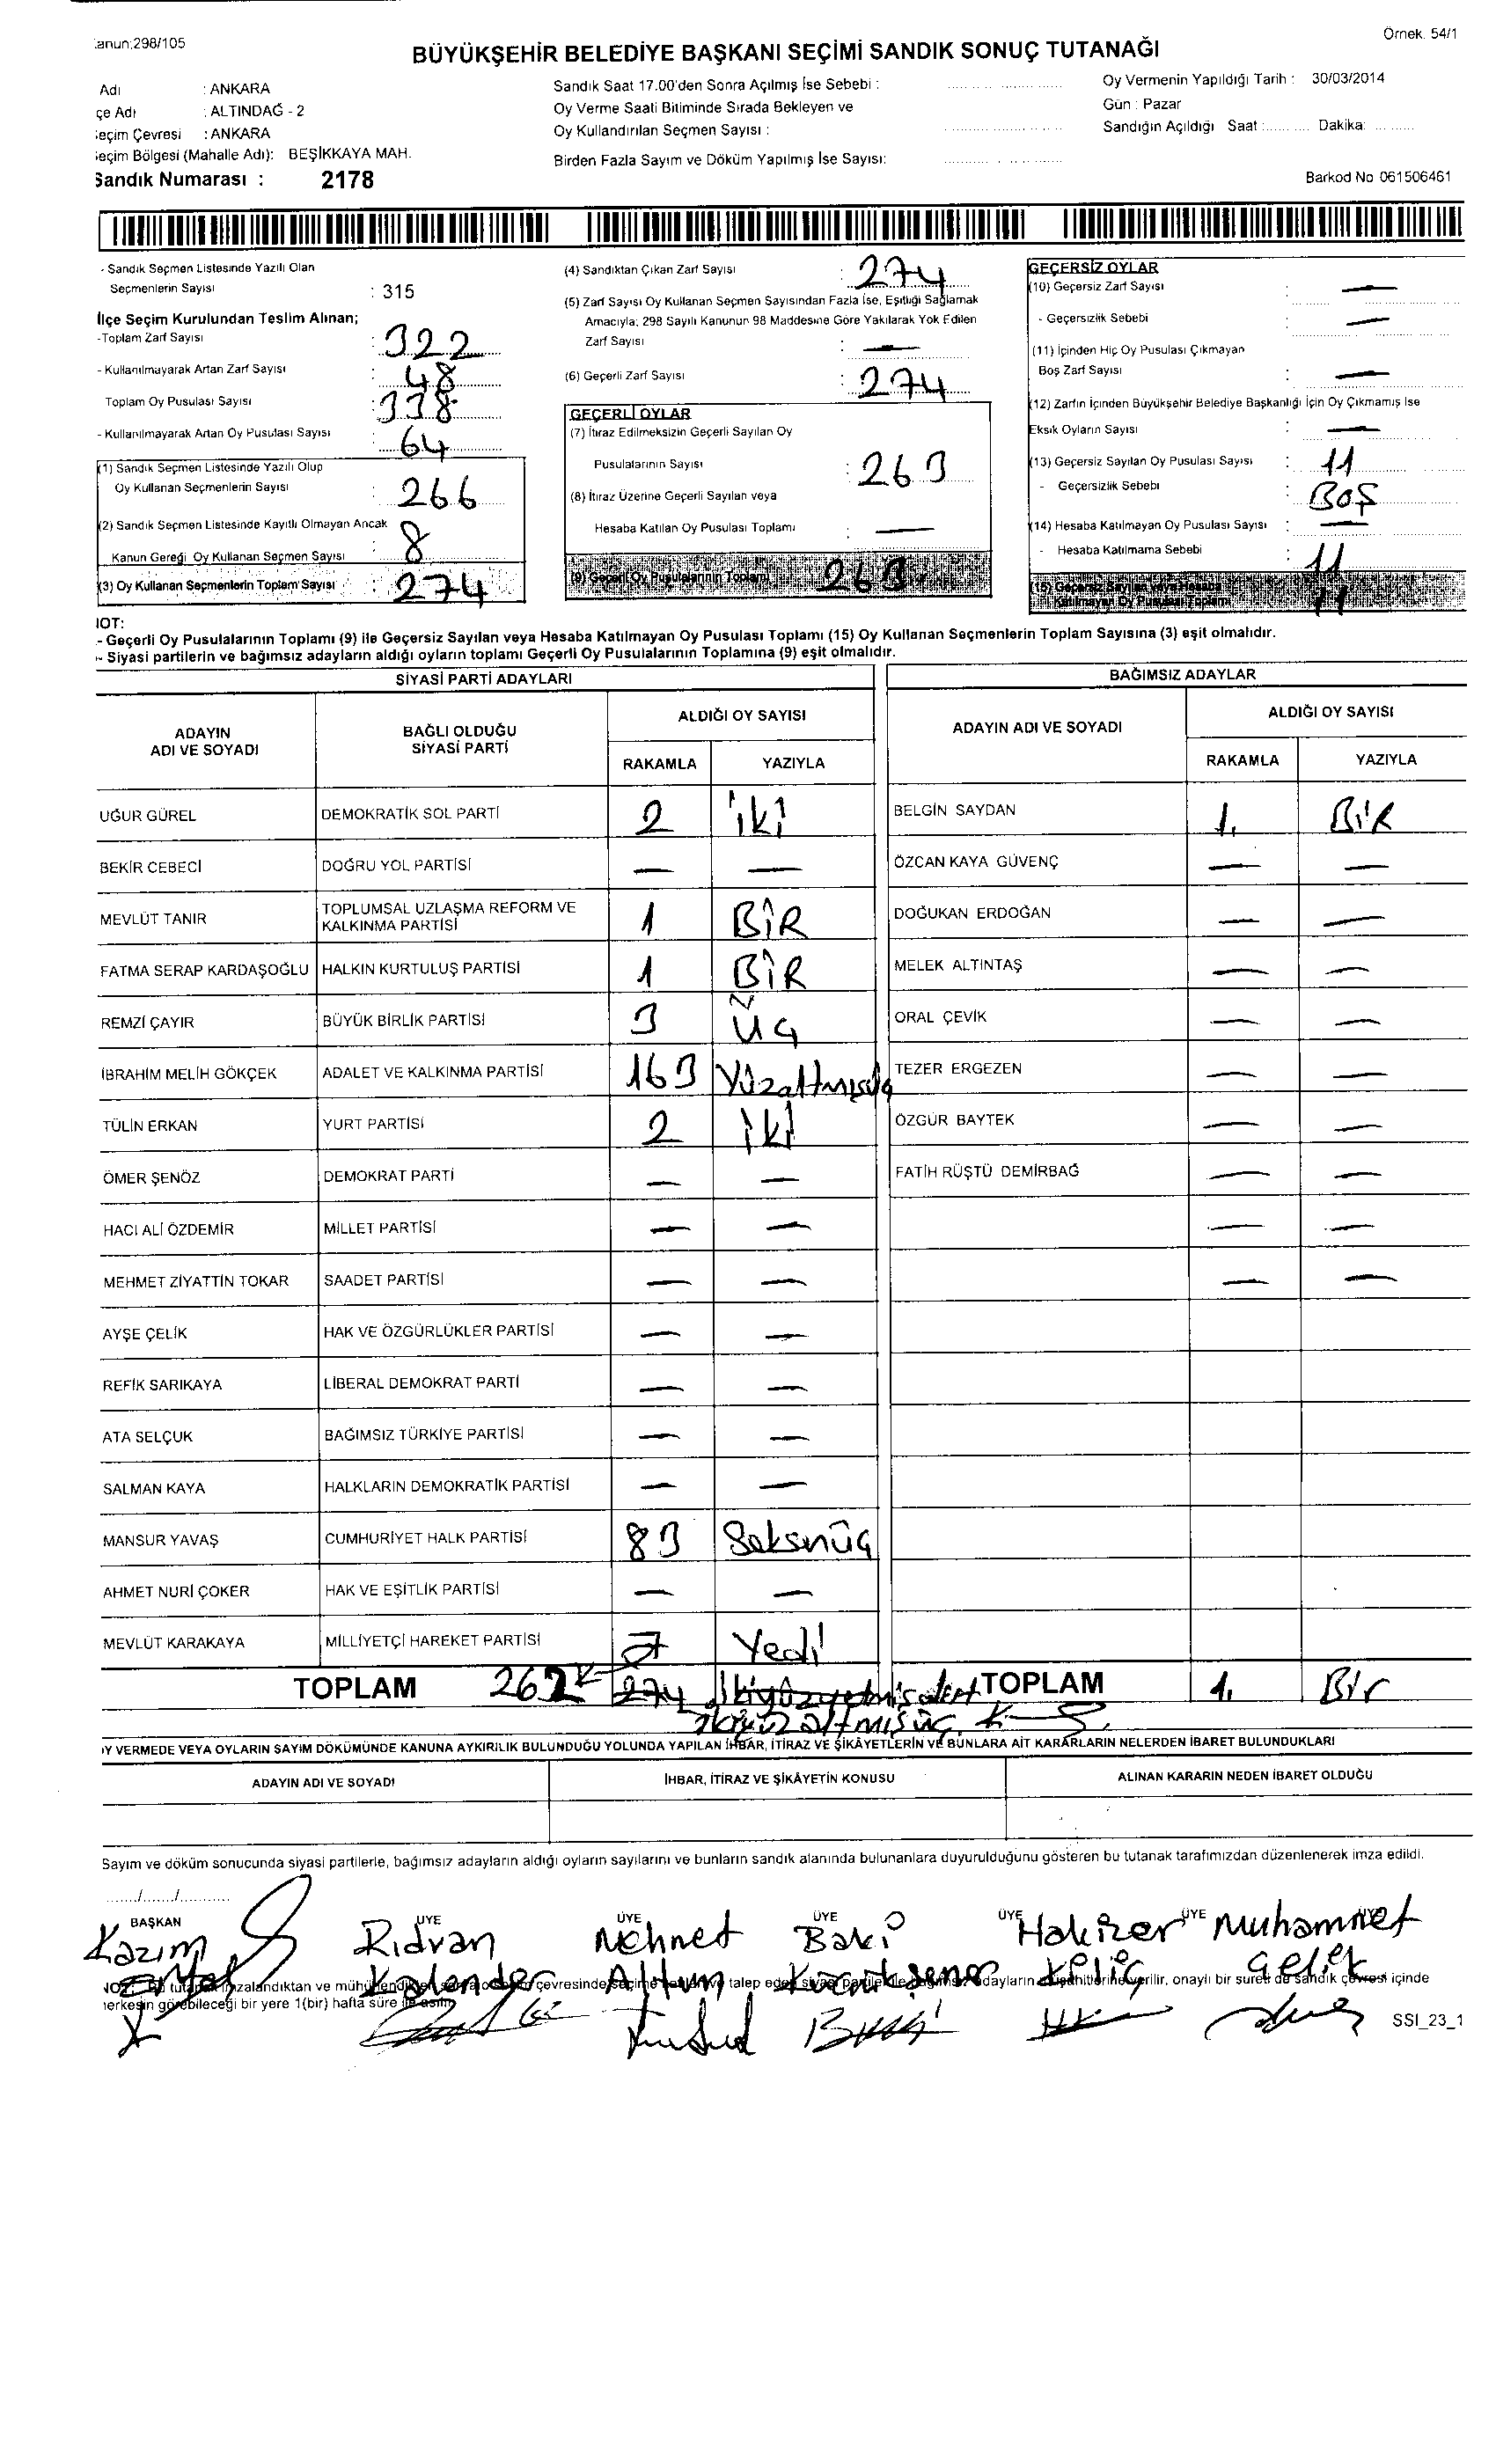 Kanun:298/105
Örnek. 54/1
BÜYÜKŞEHİR BELEDİYE BAŞKANI SEÇİMİ SANDIK SONUÇ TUTANAĞI
Adı : ANKARA
çe Adı : ALTINDAĞ - 2
Seçim Çevresi : ANKARA
Seçim Bölgesi (Mahalle Adı): BEŞİKKAYA MAH.
Sandık Numarası : 2178
Sandık Saat 17.00'den Sonra Açılmış İse Sebebi :
Oy Verme Saati Bitiminde Sırada Bekleyen ve
Oy Kullandırılan Seçmen Sayısı :
Birden Fazla Sayım ve Döküm Yapılmış İse Sayısı:
Oy Vermenin Yapıldığı Tarih : 30/03/2014
Gün : Pazar
Sandığın Açıldığı Saat :........... Dakika: .........
Barkod No 061506461
- Sandık Seçmen Listesinde Yazılı Olan
Seçmenlerin Sayısı : 315
İlçe Seçim Kurulundan Teslim Alınan;
-Toplam Zarf Sayısı : 322
- Kullanılmayarak Artan Zarf Sayısı : 48
Toplam Oy Pusulası Sayısı : 338
- Kullanılmayarak Artan Oy Pusulası Sayısı : 64
(1) Sandık Seçmen Listesinde Yazılı Olup
Oy Kullanan Seçmenlerin Sayısı : 266
(2) Sandık Seçmen Listesinde Kayıtlı Olmayan Ancak
Kanun Gereği Oy Kullanan Seçmen Sayısı : 8
(3) Oy Kullanan Seçmenlerin Toplam Sayısı : 274
(4) Sandıktan Çıkan Zarf Sayısı : 274
(5) Zarf Sayısı Oy Kullanan Seçmen Sayısından Fazla İse, Eşitliği Sağlamak
Amacıyla; 298 Sayılı Kanunun 98 Maddesine Göre Yakılarak Yok Edilen
Zarf Sayısı : —
(6) Geçerli Zarf Sayısı : 274
GEÇERLİ OYLAR
(7) İtiraz Edilmeksizin Geçerli Sayılan Oy
Pusulalarının Sayısı : 263
(8) İtiraz Üzerine Geçerli Sayılan veya
Hesaba Katılan Oy Pusulası Toplamı : —
(9) Geçerli Oy Pusulalarının Toplamı 263
GEÇERSİZ OYLAR
(10) Geçersiz Zarf Sayısı : —
- Geçersizlik Sebebi : —
(11) İçinden Hiç Oy Pusulası Çıkmayan
Boş Zarf Sayısı : —
(12) Zarfın İçinden Büyükşehir Belediye Başkanlığı İçin Oy Çıkmamış İse
Eksik Oyların Sayısı : —
(13) Geçersiz Sayılan Oy Pusulası Sayısı : 11
- Geçersizlik Sebebi : BOŞ
(14) Hesaba Katılmayan Oy Pusulası Sayısı : —
- Hesaba Katılmama Sebebi : 11
(15) Geçersiz Sayılan veya Hesaba
Katılmayan Oy Pusulası Toplamı 11
NOT:
- Geçerli Oy Pusulalarının Toplamı (9) ile Geçersiz Sayılan veya Hesaba Katılmayan Oy Pusulası Toplamı (15) Oy Kullanan Seçmenlerin Toplam Sayısına (3) eşit olmalıdır.
- Siyasi partilerin ve bağımsız adayların aldığı oyların toplamı Geçerli Oy Pusulalarının Toplamına (9) eşit olmalıdır.
SİYASİ PARTİ ADAYLARI
ADAYIN ADI VE SOYADI
BAĞLI OLDUĞU SİYASİ PARTİ
ALDIĞI OY SAYISI
RAKAMLA YAZIYLA
UĞUR GÜREL DEMOKRATİK SOL PARTİ 2 iki
BEKİR CEBECİ DOĞRU YOL PARTİSİ — —
MEVLÜT TANIR TOPLUMSAL UZLAŞMA REFORM VE KALKINMA PARTİSİ 1 BİR
FATMA SERAP KARDAŞOĞLU HALKIN KURTULUŞ PARTİSİ 1 BİR
REMZİ ÇAYIR BÜYÜK BİRLİK PARTİSİ 3 ÜÇ
İBRAHİM MELİH GÖKÇEK ADALET VE KALKINMA PARTİSİ 163 Yüzaltmışüç
TÜLİN ERKAN YURT PARTİSİ 2 iki
ÖMER ŞENÖZ DEMOKRAT PARTİ — —
HACI ALİ ÖZDEMİR MİLLET PARTİSİ — —
MEHMET ZİYATTİN TOKAR SAADET PARTİSİ — —
AYŞE ÇELİK HAK VE ÖZGÜRLÜKLER PARTİSİ — —
REFİK SARIKAYA LİBERAL DEMOKRAT PARTİ — —
ATA SELÇUK BAĞIMSIZ TÜRKİYE PARTİSİ — —
SALMAN KAYA HALKLARIN DEMOKRATİK PARTİSİ — —
MANSUR YAVAŞ CUMHURİYET HALK PARTİSİ 83 Seksnüç
AHMET NURİ ÇOKER HAK VE EŞİTLİK PARTİSİ — —
MEVLÜT KARAKAYA MİLLİYETÇİ HAREKET PARTİSİ 7 Yedi
TOPLAM 262 274 ikiyüzyetmişdört
ikiyüz altmışüç
BAĞIMSIZ ADAYLAR
ADAYIN ADI VE SOYADI
ALDIĞI OY SAYISI
RAKAMLA YAZIYLA
BELGİN SAYDAN 1. BİR
ÖZCAN KAYA GÜVENÇ — —
DOĞUKAN ERDOĞAN — —
MELEK ALTINTAŞ — —
ORAL ÇEVİK — —
TEZER ERGEZEN — —
ÖZGÜR BAYTEK — —
FATİH RÜŞTÜ DEMİRBAĞ — —
— —
— —
TOPLAM 1. Bir
OY VERMEDE VEYA OYLARIN SAYIM DÖKÜMÜNDE KANUNA AYKIRILIK BULUNDUĞU YOLUNDA YAPILAN İHBAR, İTİRAZ VE ŞİKÂYETLERİN VE BUNLARA AİT KARARLARIN NELERDEN İBARET BULUNDUKLARI
ADAYIN ADI VE SOYADI İHBAR, İTİRAZ VE ŞİKÂYETİN KONUSU ALINAN KARARIN NEDEN İBARET OLDUĞU
Sayım ve döküm sonucunda siyasi partilerle, bağımsız adayların aldığı oyların sayılarını ve bunların sandık alanında bulunanlara duyurulduğunu gösteren bu tutanak tarafımızdan düzenlenerek imza edildi.
....../....../...........
BAŞKAN ÜYE ÜYE ÜYE ÜYE ÜYE
Kazım Rıdvan Mehmet Baki Muhammet
Kalender Altun Şener Kılıç Çelik
NOT: Bu tutanak imzalandıktan ve mühürlendikten sonra çevresinde seçime katılan ve talep eden siyasi partiler ile bağımsız adayların müşahitlerine verilir, onaylı bir sureti de sandık çevresi içinde
herkesin görebileceği bir yere 1(bir) hafta süre ile asılır.
SSI_23_1